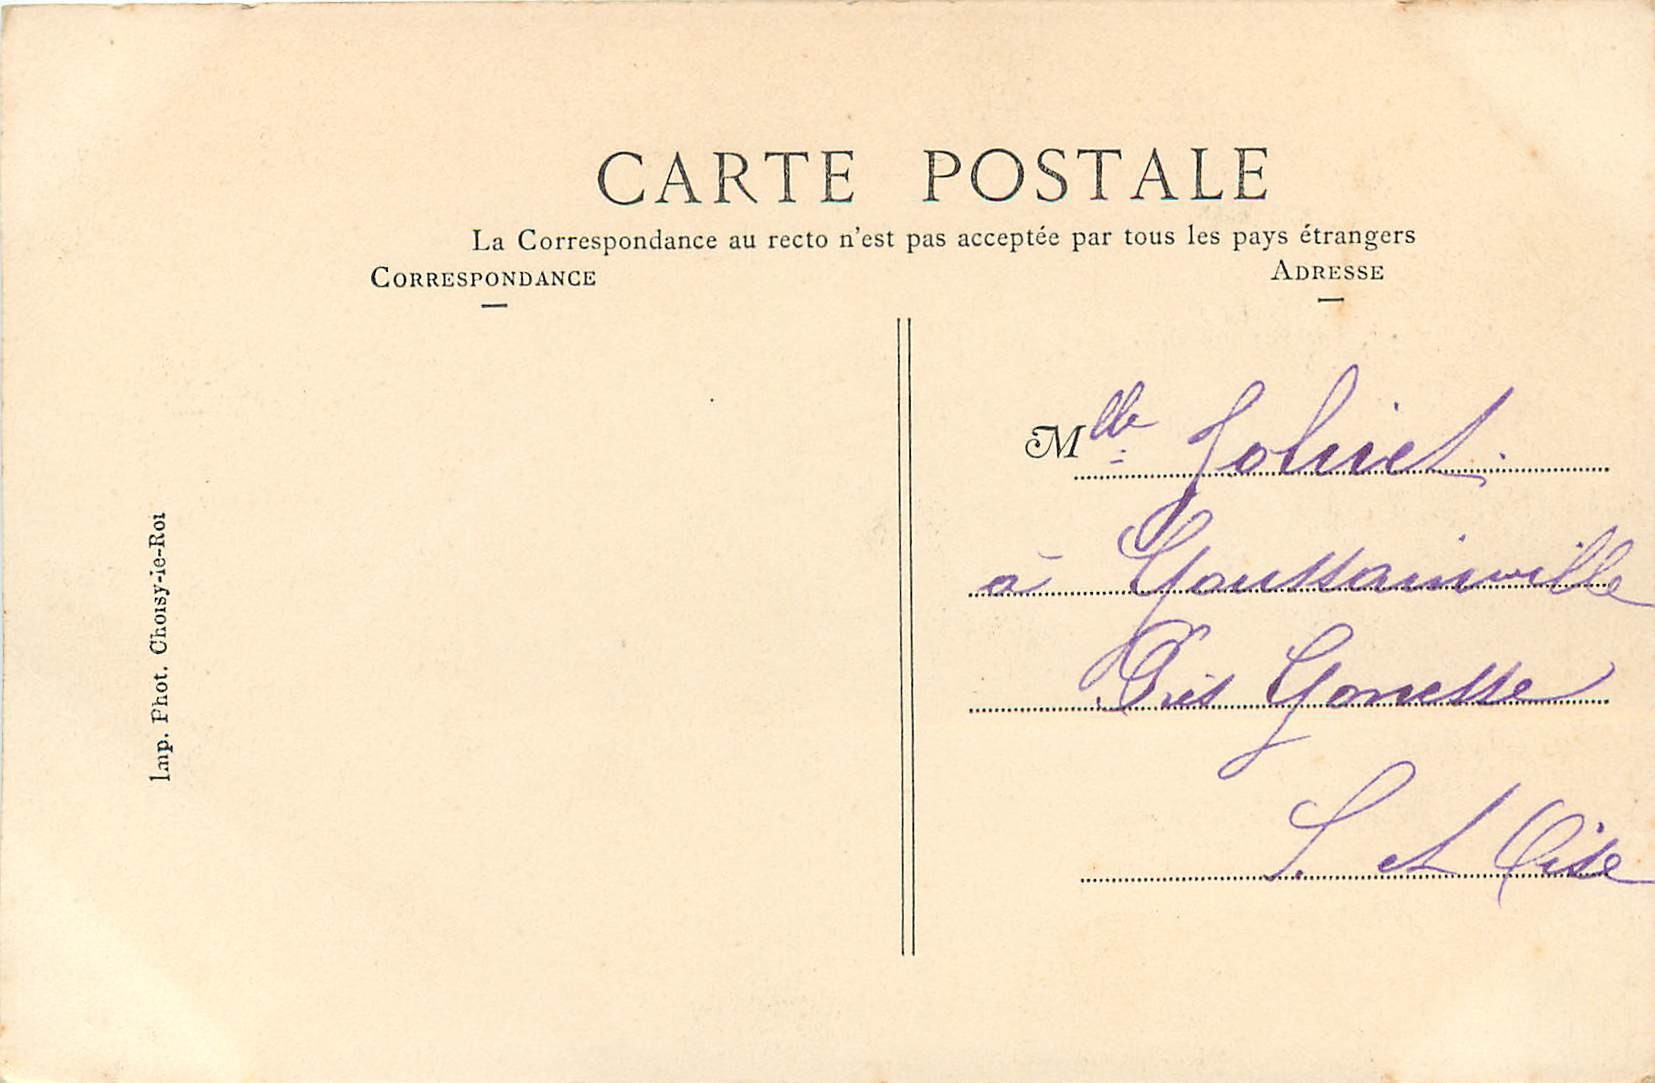 CARTE POSTALE
La Correspondance au recto n'est pas acceptée par tous les pays étrangers
CORRESPONDANCE
ADRESSE
Mlle Jolivet
à Goussainville
Près Gonesse
S. et Oise
Imp. Phot. Choisy-le-Roi